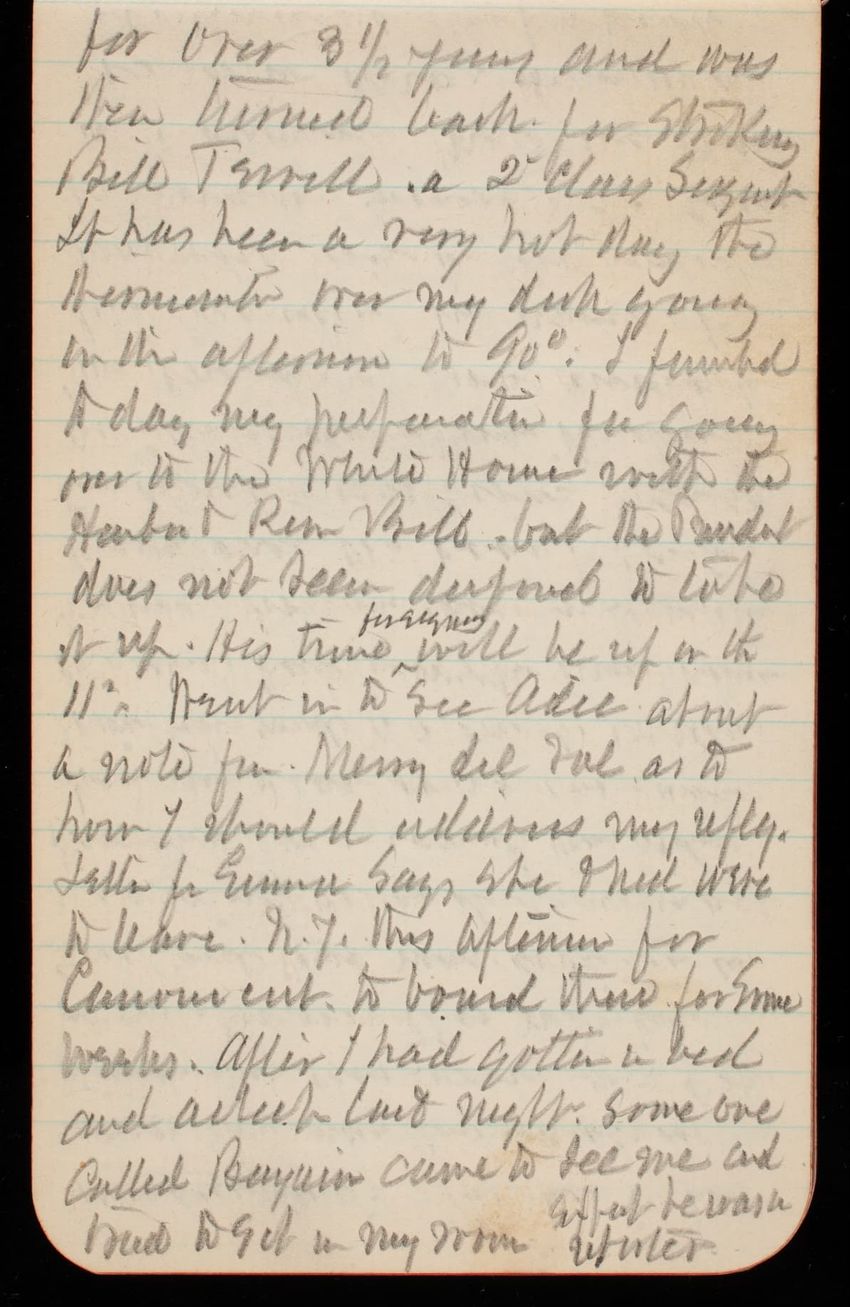 for over 3 1/2 years and was
then turned back for Striking
Bill Terrill . a 2d Class Sergent
It has been a very hot day the
thermometer over my desk going
in the afternoon to 90°. I finished
to day my preparation for going
over to the White House with the
Bill . but the Presdent
does not seem disposed to take
it up. His time for signing will be up on the
11th. Went in to see Adee about
a note from Merry del Val as to
how I should address my reply.
Letter from Emma Says she & Ned were
to leave N.Y. this afternoon for
to board there for Some
weeks. After I had gotten in bed
and asleep last night. some one
Called came to see me and
tried to get in my room
he was a